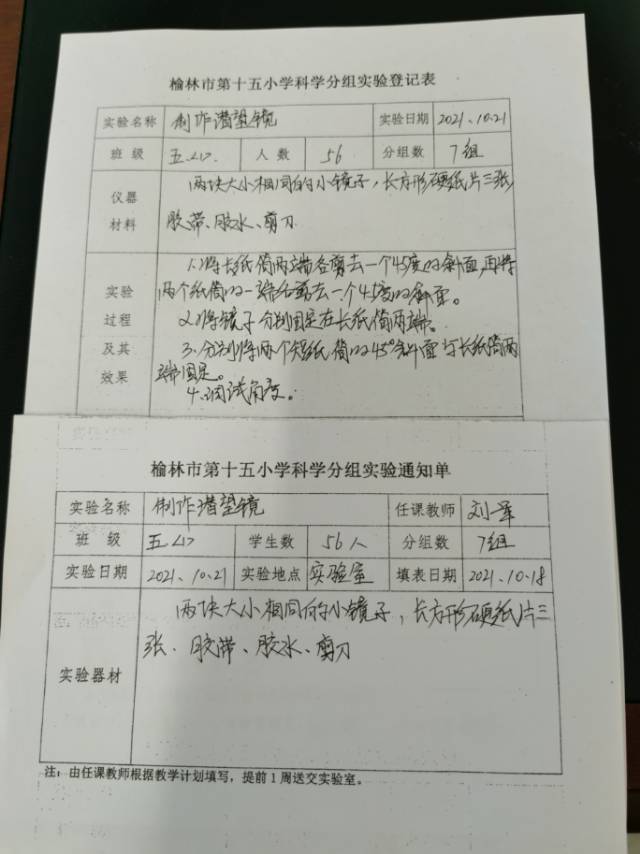 榆林市第十五小学科学分组实验登记表
实验名称 制作潜望镜 实验日期 2021.10.21
班 级 五 人 数 56 分组数 7组
仪器材料
两块大小相同的小镜子，长方形硬纸片三张
胶带、胶水、剪刀
实验过程及其效果
1.将长纸筒两端各剪去一个45度的斜面，再将
两个纸筒的一端各剪去一个45度的斜面。
2.将镜子分别固定在长纸筒两端。
3.分别将两个短纸筒的45°斜面与长纸筒两
端固定。
4.调试角度。
榆林市第十五小学科学分组实验通知单
实验名称 制作潜望镜 任课教师 刘
班 级 五 学生数 56人 分组数 7组
实验日期 2021.10.21 实验地点 实验室 填表日期 2021.10.18
实验器材
两块大小相同的小镜子，长方形硬纸片三
张、胶带、胶水、剪刀
注：由任课教师根据教学计划填写，提前1周送交实验室。